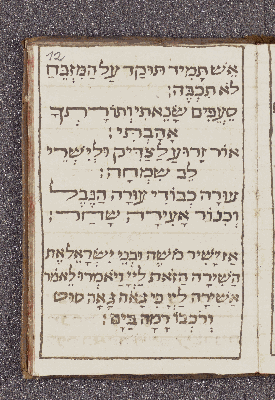 12
אֵשׁ תָּמִיד תּוּקַד עַל הַמִּזְבֵּחַ
לֹא תִכְבֶּה׃
סֵעֲפִים שָׂנֵאתִי וְתוֹרָתְךָ
אָהָבְתִּי׃
אוֹר זָרוּעַ לַצַּדִּיק וּלְיִשְׁרֵי
לֵב שִׂמְחָה׃
עוּרָה כְבוֹדִי עוּרָה הַנֵּבֶל
וְכִנּוֹר אָעִירָה שָּׁחַר׃
אָז יָשִׁיר מֹשֶׁה וּבְנֵי יִשְׂרָאֵל אֶת
הַשִּׁירָה הַזֹּאת לַיְיָ וַיֹּאמְרוּ לֵאמֹר
אָשִׁירָה לַיְיָ כִּי גָאֹה גָּאָה סוּס
וְרֹכְבוֹ רָמָה בַיָּם׃